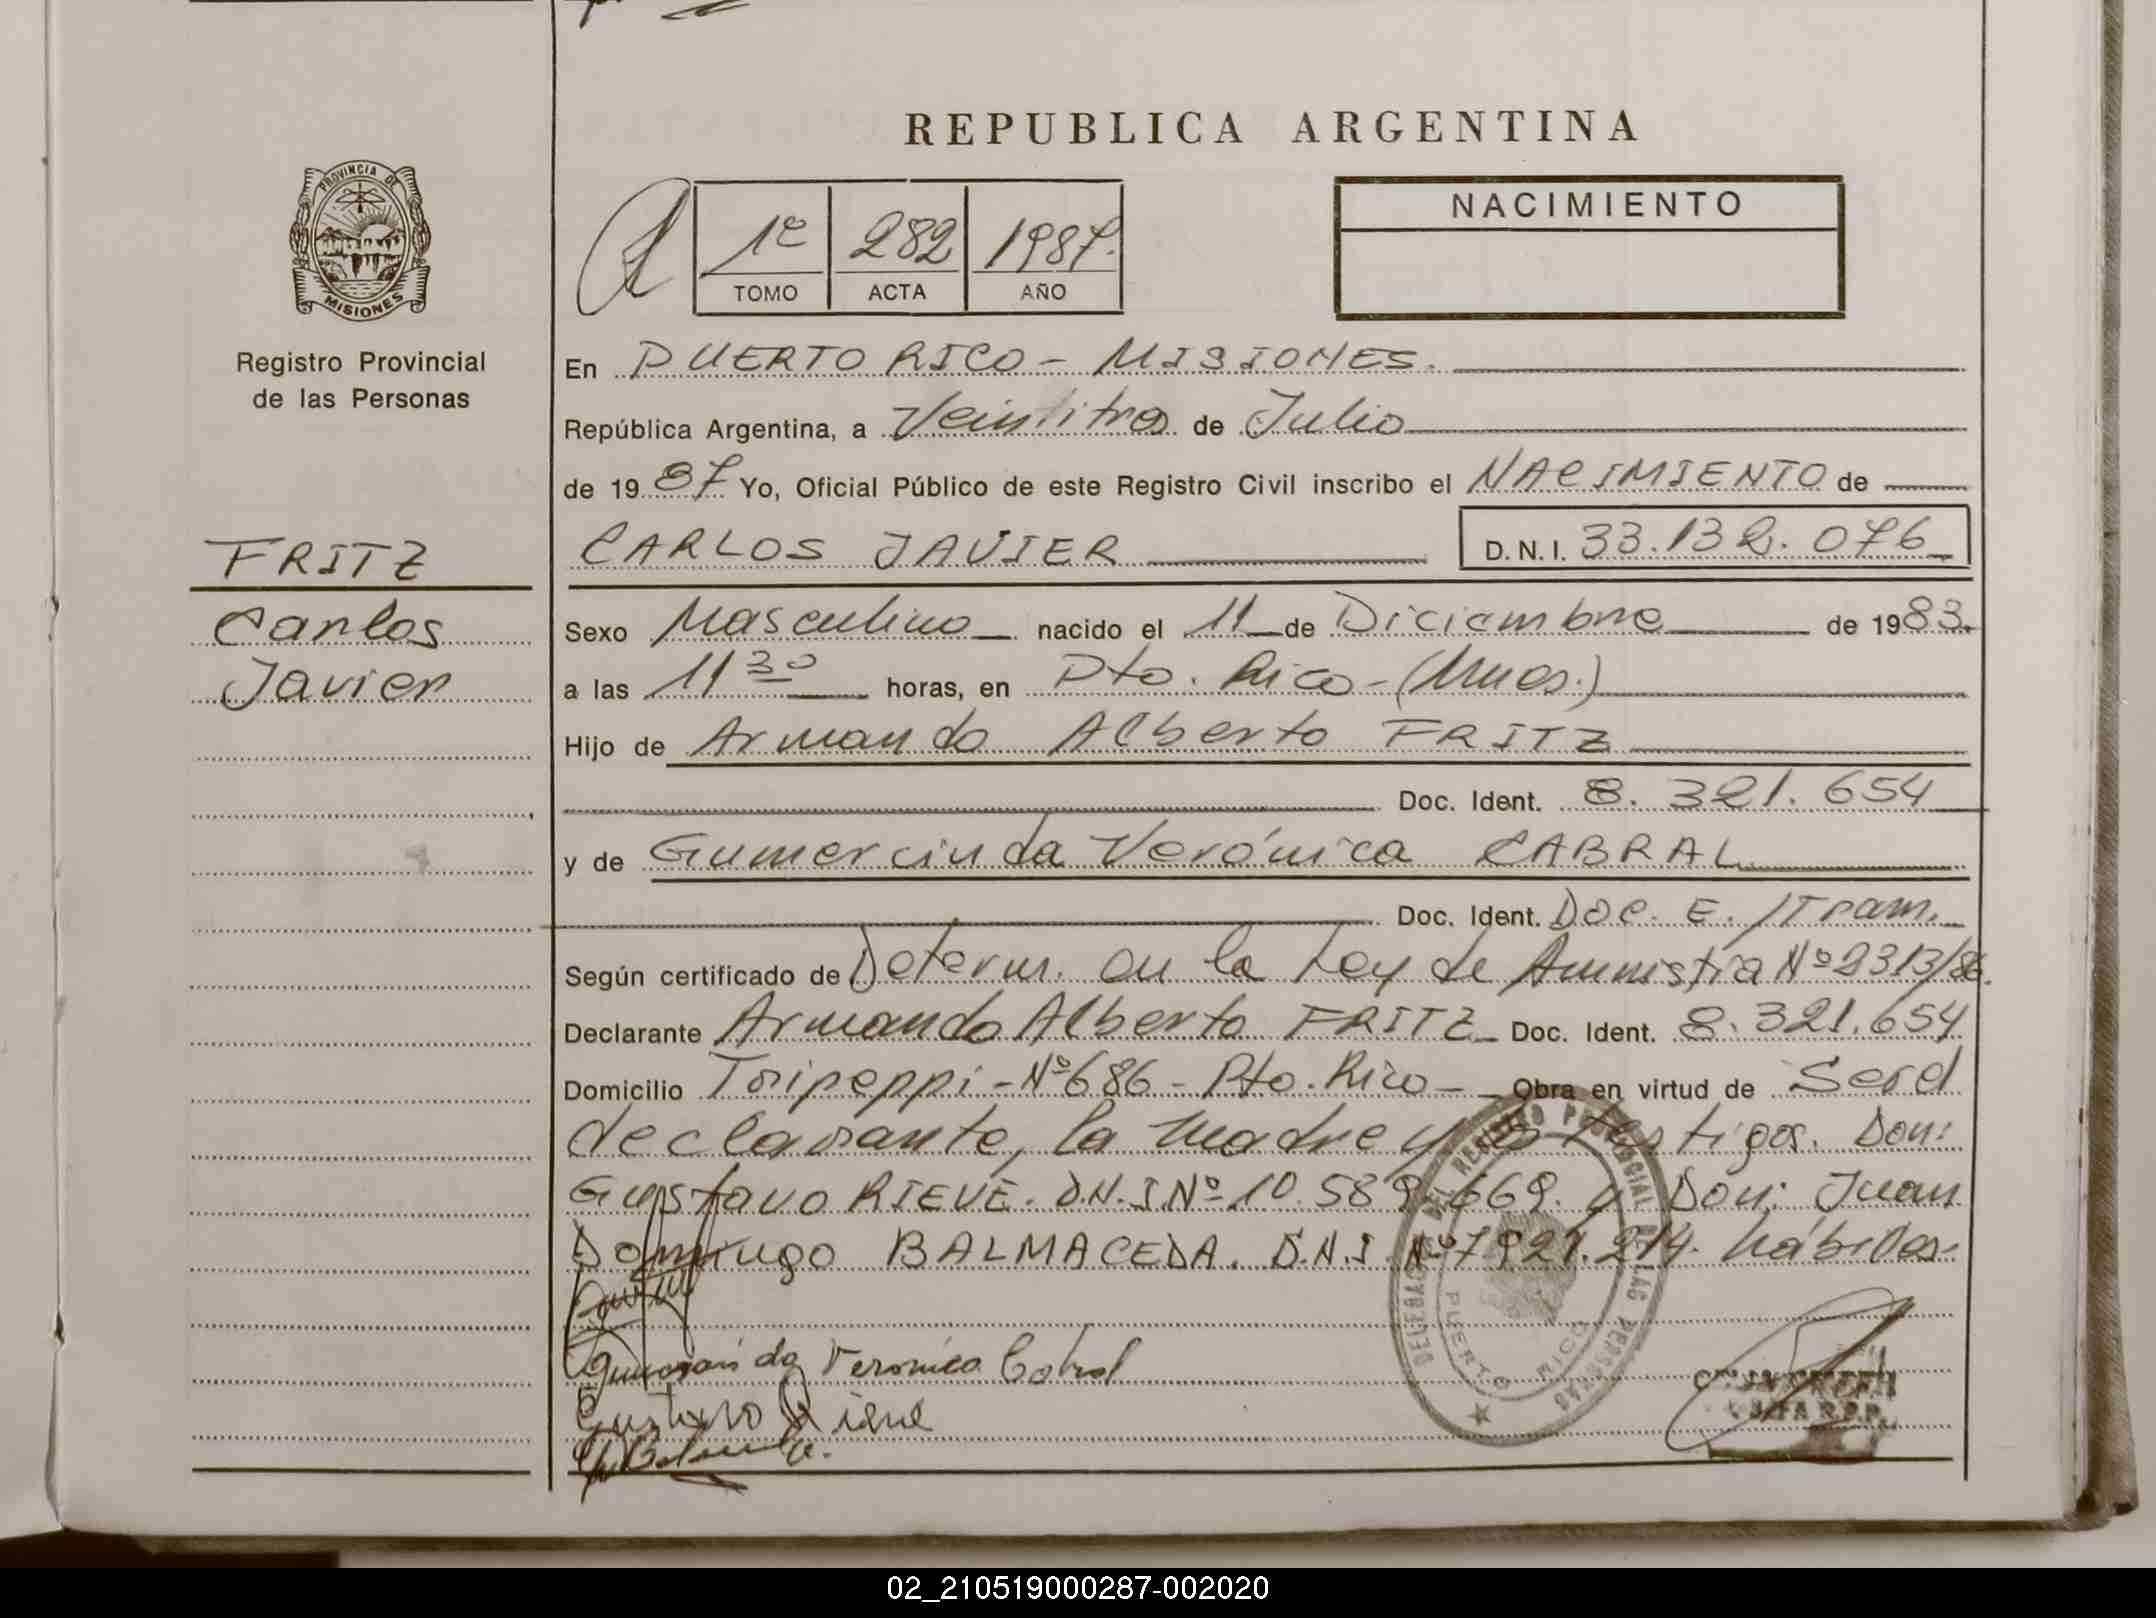 REPUBLICA ARGENTINA
PROVINCIA DE
MISIONES
1º 282 1987.
TOMO ACTA AÑO
NACIMIENTO
Registro Provincial
de las Personas
En PUERTO RICO - MISIONES.
República Argentina, a Veintitres de Julio
de 1987 Yo, Oficial Público de este Registro Civil inscribo el NACIMIENTO de
FRITZ
CARLOS JAVIER D.N.I. 33.132.076
Carlos
Sexo Masculino nacido el 11 de Diciembre de 1983.
Javier
a las 11 30 horas, en Pto. Rico - (Mnes.)
Hijo de Armando Alberto FRITZ
Doc. Ident. 8.321.654
y de Gumercinda Verónica CABRAL
Doc. Ident. Doc. E./Tram.
Según certificado de Determ. en la Ley de Amnistia Nº 2313/86.
Declarante Armando Alberto FRITZ Doc. Ident. 8.321.654
Domicilio Toripeppi - Nº 686 - Pto. Rico - Obra en virtud de Ser el
declarante, la madre y testigos. Don:
Gustavo RIEVE. D.N.I Nº 10.589.669. y Don: Juan
Domingo BALMACEDA. D.N.I. Nº 7.921.214. hábiles.
DELEGACION DEL REGISTRO PROVINCIAL DE LAS PERSONAS
PUERTO RICO
Gumercinda Veronica Cabral
Gustavo Rieve
02_210519000287-002020